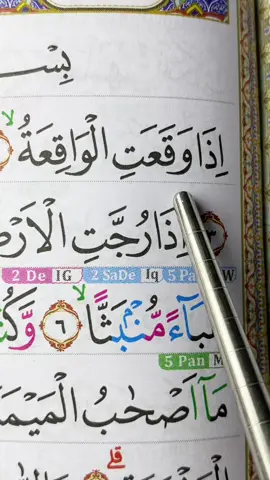 بِسْ
اِذَا وَقَعَتِ الْوَاقِعَةُ
٣ اِذَا رُجَّتِ الْاَرْ
2 De IG 2 SaDe Iq 5 Pa W
هَبَآءً مُّنْۢبَثًّا ۙ ٦ وَّكُنْ
5 Pan M
مَاۤ اَصْحٰبُ الْمَيْمَ
قلے